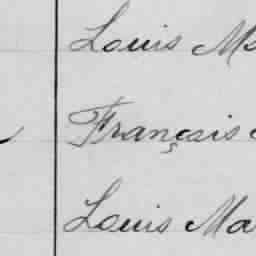 Louis Ma
François
Louis Ma